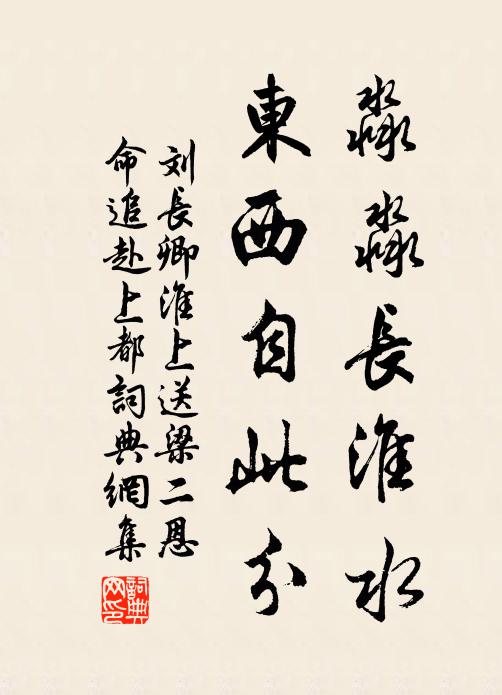 淼淼長淮水
東西自此分
刘長卿淮上送梁二恩
命追赴上都詞典網集
詞典网印